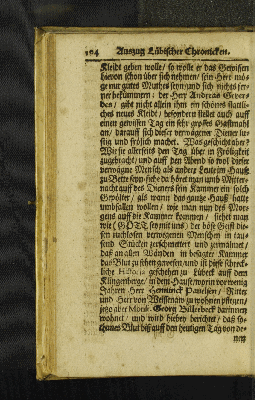 104 Auszug Lübischer Chronicken.
Kleidt geben wolle / so wolle er das Gewissen
hievon schon über sich nehmen / sein Herr mö-
ge nur gutes Muthes seyn / und sich nichts fer-
ner bekümmern: der Herr Andreas Gever-
des / gibt nicht allein ihm ein schönes stattli-
ches neues Kleidt / besondern stellet auch auff
einen gewissen Tag ein sehr großes Gastmahl
an / darauff sich dieser verwogener Diener lu-
stig und frölich machet. Was geschicht aber?
Wie sie allerseits den Tag über in Fröligkeit
zugebracht / und auff den Abend so wol dieser
verwogne Mensch als andere Leute im Hause
zu Bette seyn / siehe da höret man umb Mitter-
nacht auff des Dieners sein Kammer ein solch
Gepolter / als wann das gantze Hauß hätte
umbfallen wollen / wie man nun des Mor-
gens auff die Kammer kommen / siehet man
wie (GOTT sey mit uns) der böse Geist die-
sen ruchlosen verwegenen Menschen in tau-
send Stücken zerschmettert und zermalmet /
daß an allen Wänden in besagter Kammer
das Blut zu sehen gewesen / und ist diese schreck-
liche Historia geschehen zu Lübeck auff dem
Klingenberge / in dem Hause / worin vor wenig
Jahren Herr Henninck Paulsen / Ritter
und Herr von Weissenau zu wohnen pflegen /
jetzo aber Mons. Georg Billerbeck darinnen
wohnet / und wird hiebey berichtet / das so-
thanes Blut biß auff den heutigen Tag von de-
nen